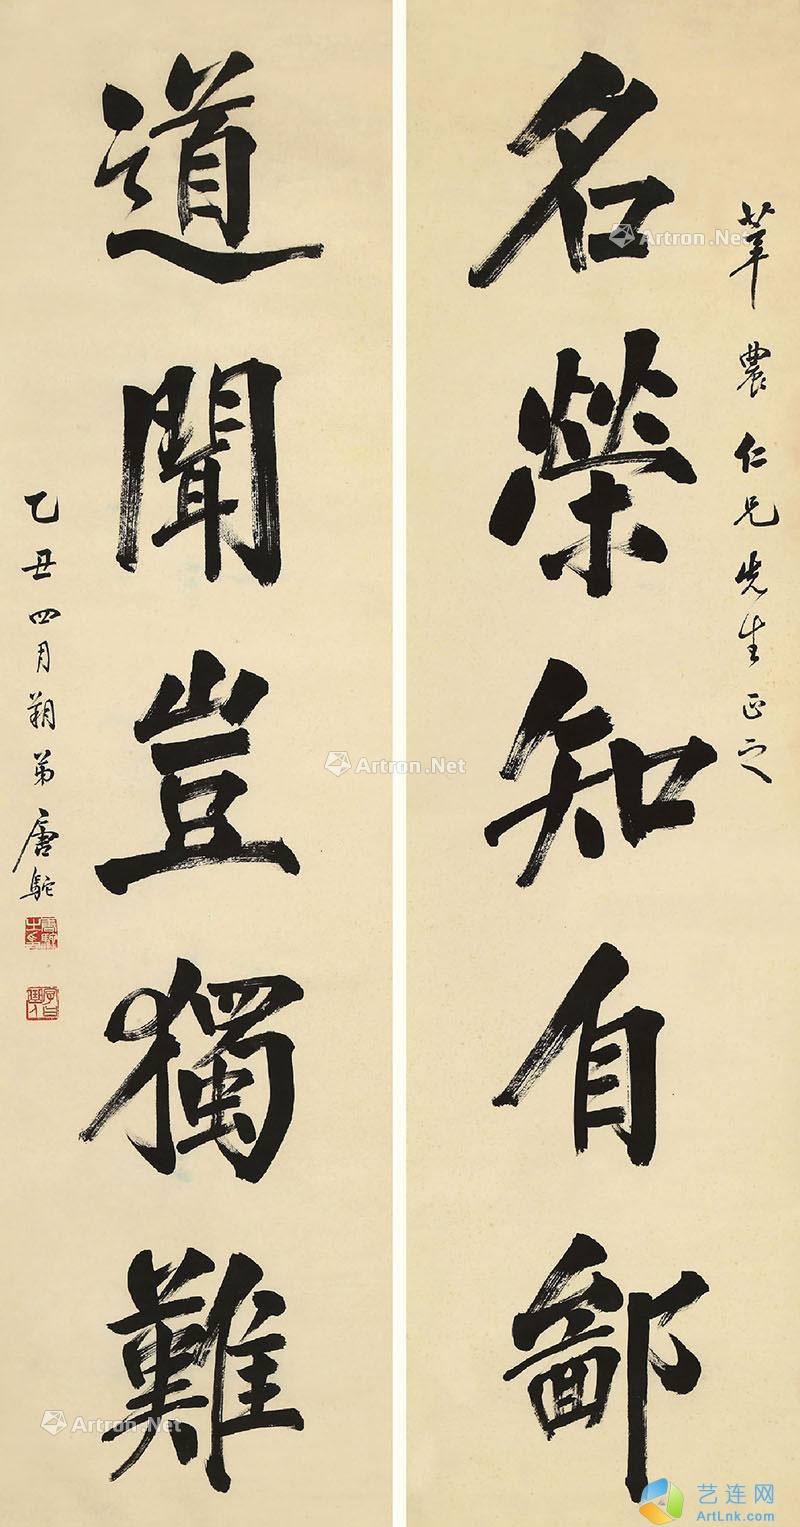 莘農仁兄先生正之
名榮知自鄙
道聞豈獨難
乙丑四月朔弟唐駝
Artron.Net
Artron.Net
Artron.Net
Artron.Net
艺连网
ArtLnk.com